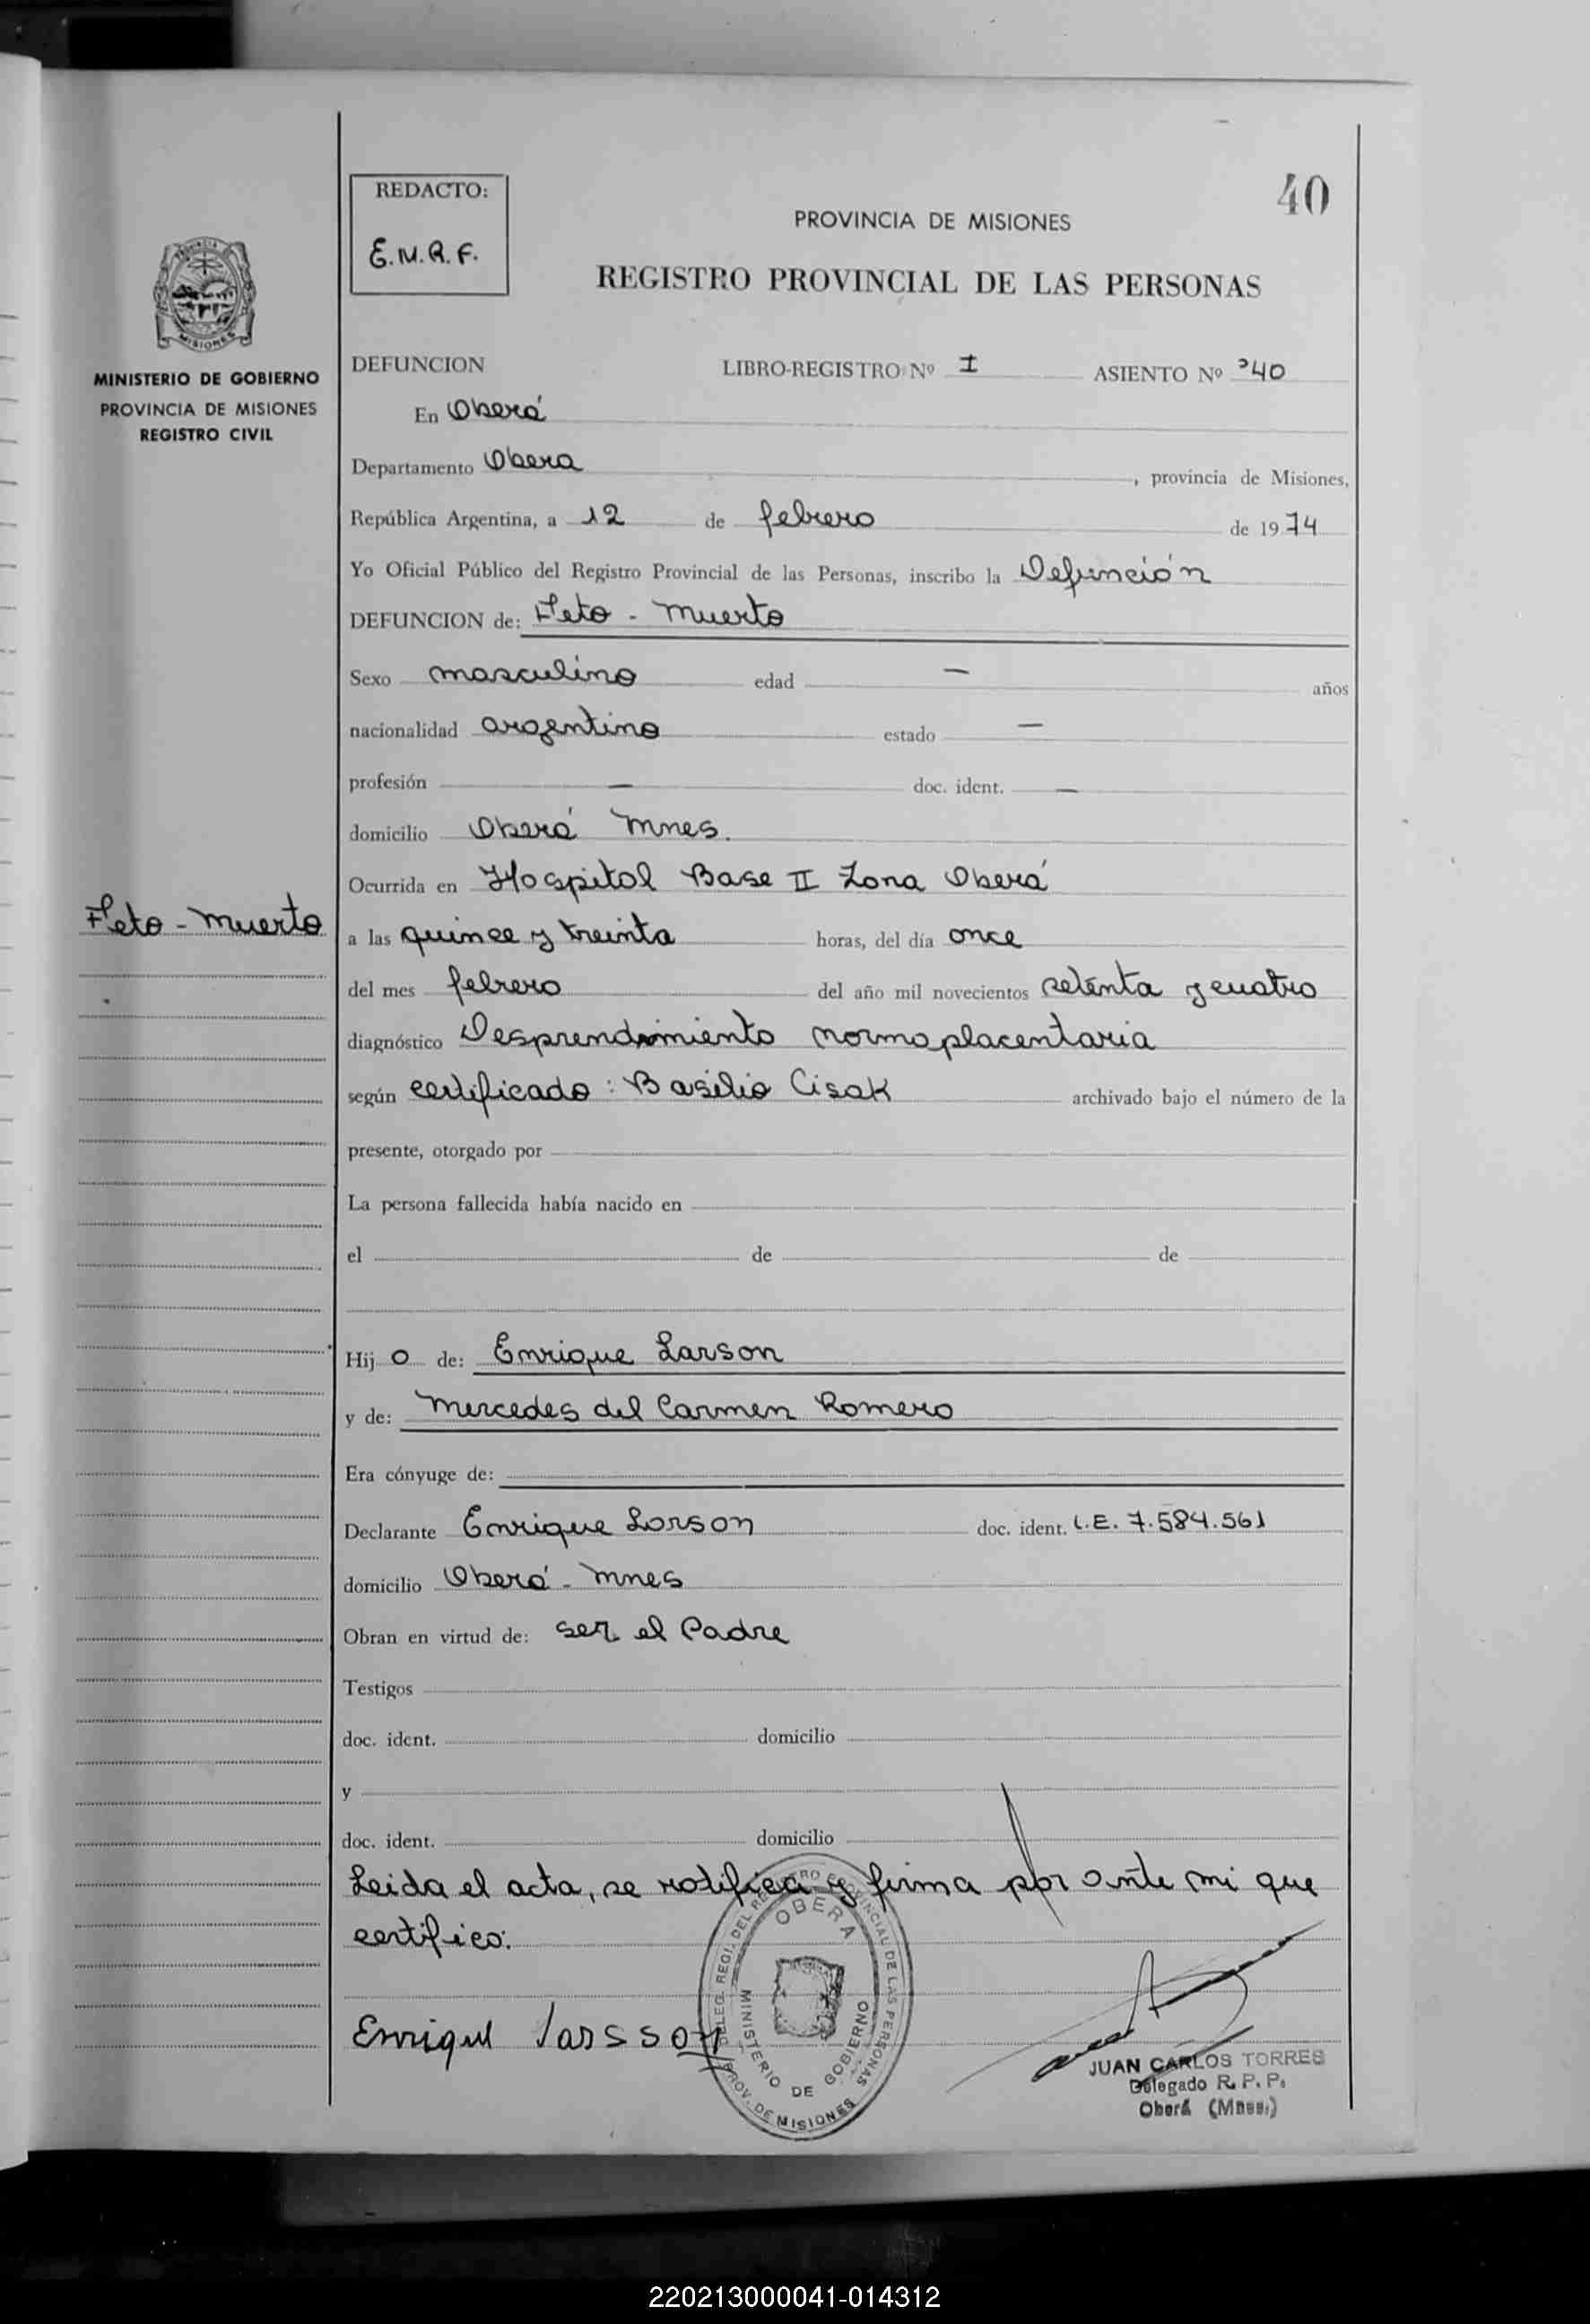 40
REDACTO:
E.M.R.F.
PROVINCIA DE MISIONES
REGISTRO PROVINCIAL DE LAS PERSONAS
MISIONES
MINISTERIO DE GOBIERNO
PROVINCIA DE MISIONES
REGISTRO CIVIL
DEFUNCION LIBRO-REGISTRO Nº I ASIENTO Nº 040
En Oberá
Departamento Obera, provincia de Misiones,
República Argentina, a 12 de febrero de 1974
Yo Oficial Público del Registro Provincial de las Personas, inscribo la Defunción
DEFUNCION de: Feto - Muerto
Sexo masculino edad — años
nacionalidad argentino estado —
profesión — doc. ident. —
domicilio Oberá Mnes.
Ocurrida en Hospital Base II Zona Oberá
Feto - Muerto
a las quince y treinta horas, del día once
del mes febrero del año mil novecientos setenta y cuatro
diagnóstico Desprendimiento normoplacentaria
según certificado : Basilio Cisak archivado bajo el número de la
presente, otorgado por
La persona fallecida había nacido en
el de de
Hij o de: Enrique Larson
y de: Mercedes del Carmen Romero
Era cónyuge de:
Declarante Enrique Larson doc. ident. L.E. 7.584.561
domicilio Oberá - Mnes
Obran en virtud de: ser el Padre
Testigos
doc. ident. domicilio
y
doc. ident. domicilio
Leida el acta, se ratifica y firma por ante mi que
certifico:
DELEG. REGI. DEL REGISTRO PROVINCIAL DE LAS PERSONAS
OBERA
MINISTERIO DE GOBIERNO
PROV. DE MISIONES
Enrique Larsson
JUAN CARLOS TORRES
Delegado R. P. P.
Oberá (Mnes.)
220213000041-014312